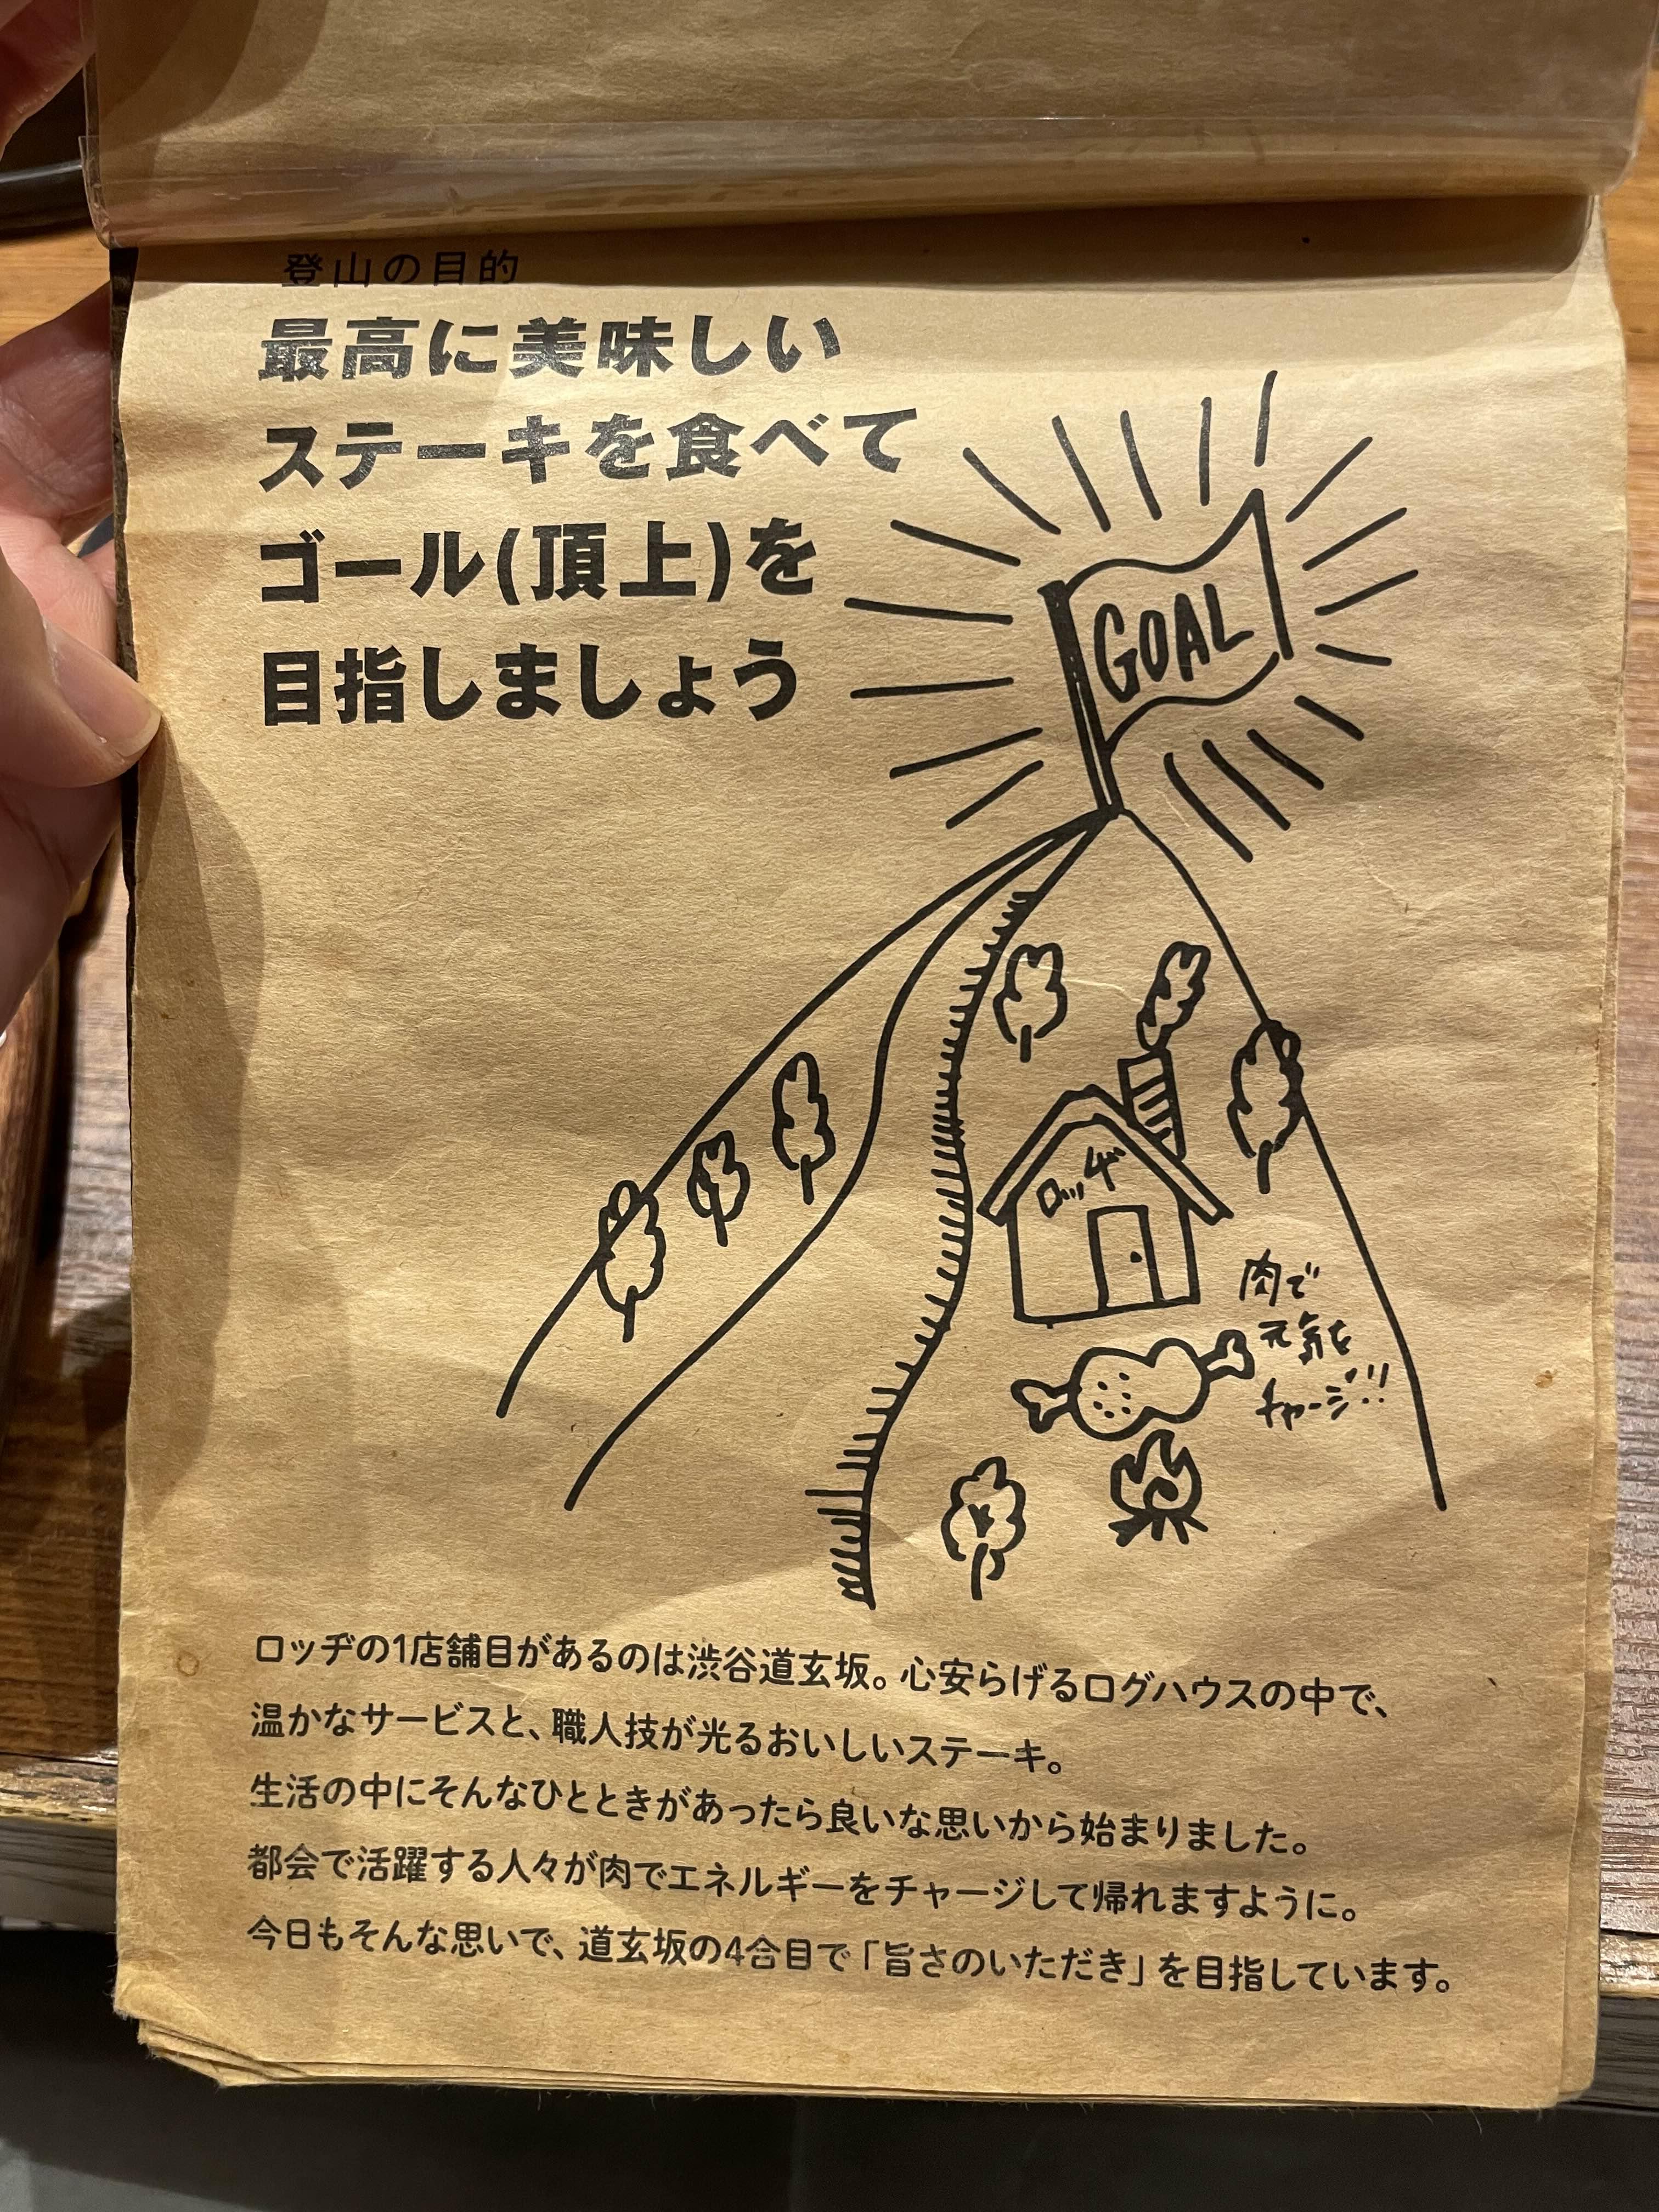 登山の目的
最高に美味しい
ステーキを食べて
ゴール(頂上)を
目指しましょう
GOAL
ロッヂ
肉で
元気を
チャージ!!
ロッヂの1店舗目があるのは渋谷道玄坂。心安らげるログハウスの中で、
温かなサービスと、職人技が光るおいしいステーキ。
生活の中にそんなひとときがあったら良いな思いから始まりました。
都会で活躍する人々が肉でエネルギーをチャージして帰れますように。
今日もそんな思いで、道玄坂の4合目で「旨さのいただき」を目指しています。